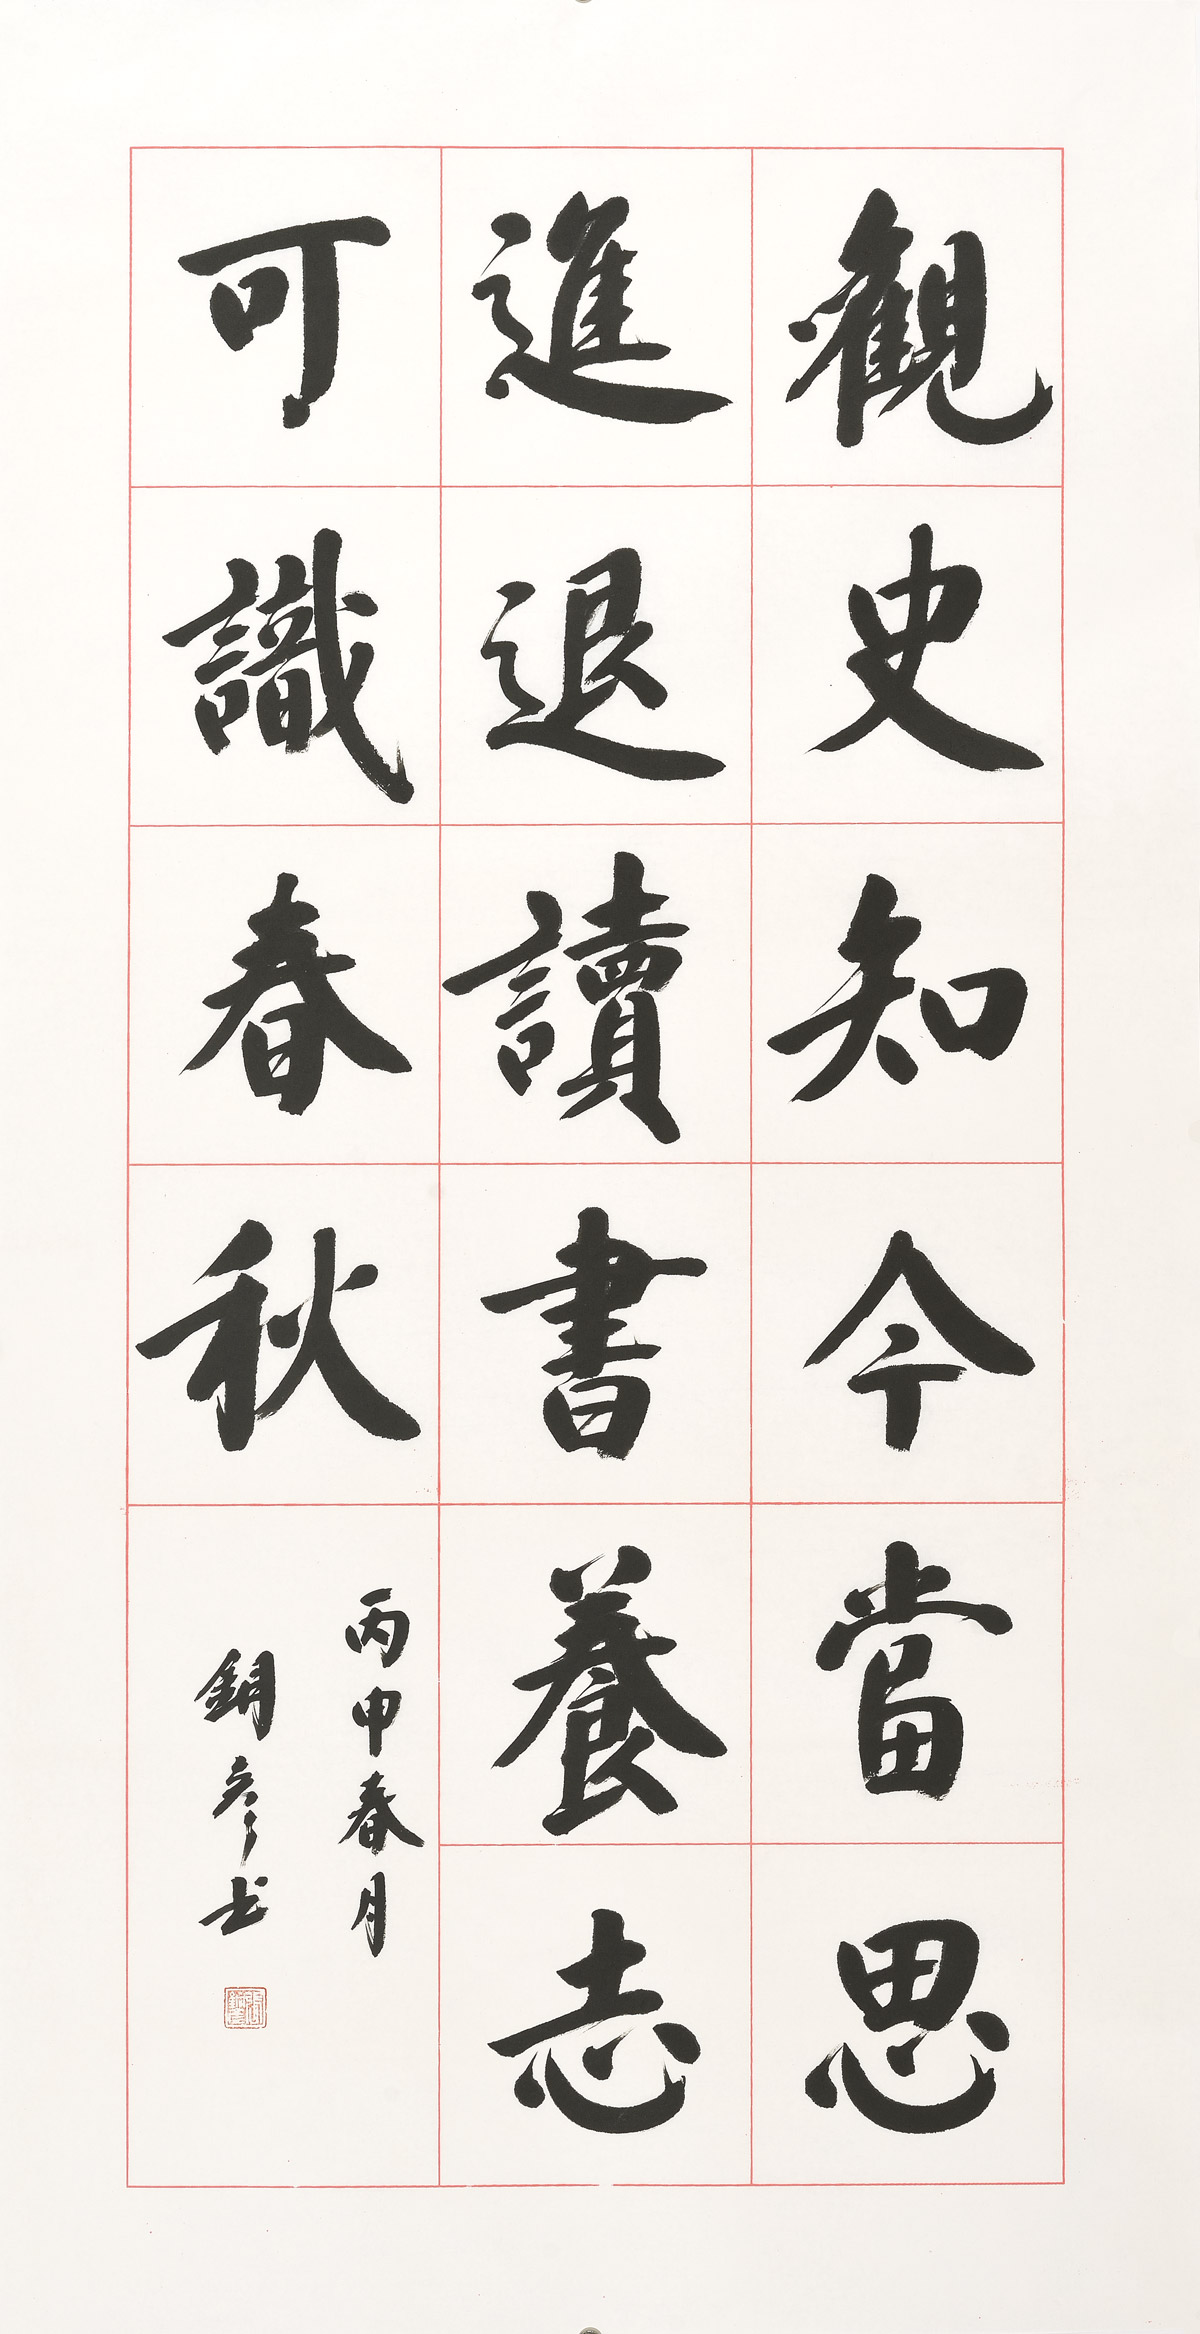 觀史知今當思
進退讀書養志
可識春秋
丙申春月
銅彥书